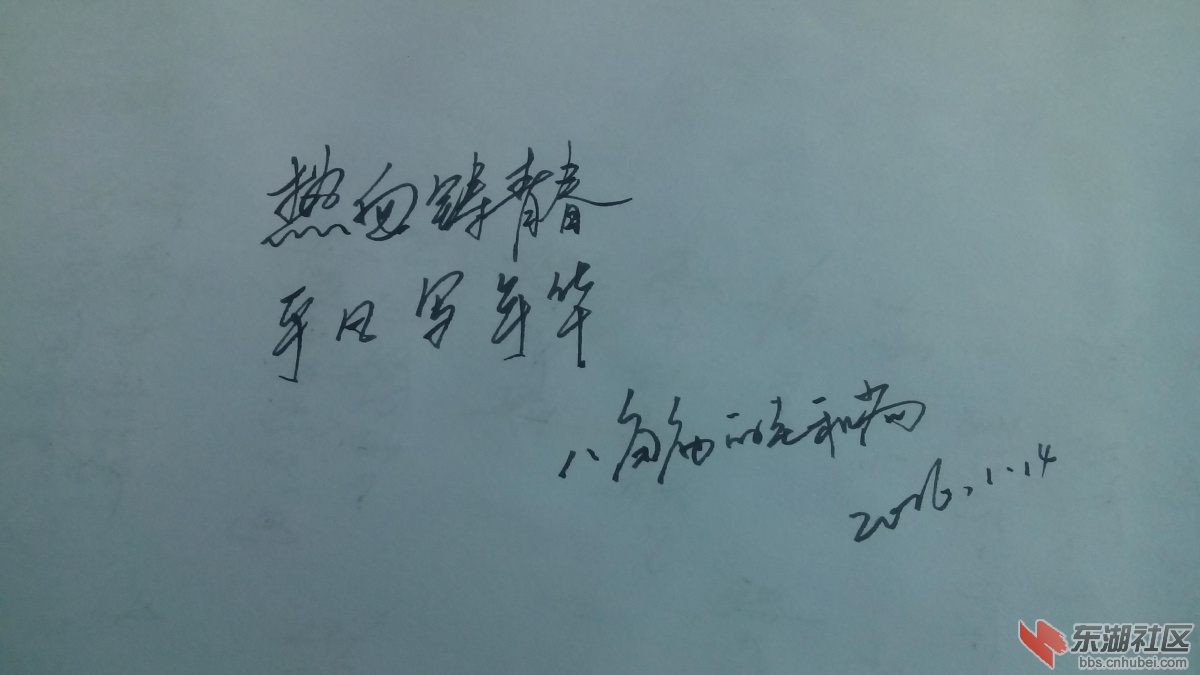 热血铸青春
平日写年华
八角的和尚
2016.1.14
东湖社区
bbs.cnhubei.com